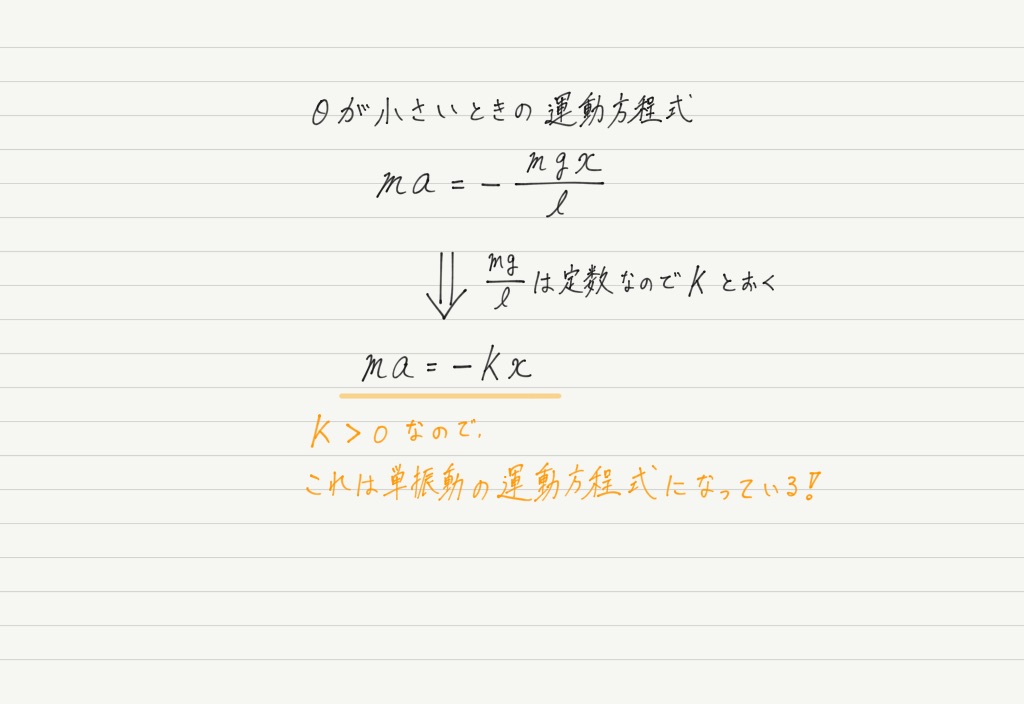 θが小さいときの運動方程式
ma = - mgx/l
mg/l は定数なので K とおく
ma = -kx
K > 0 なので、
これは単振動の運動方程式になっている!!